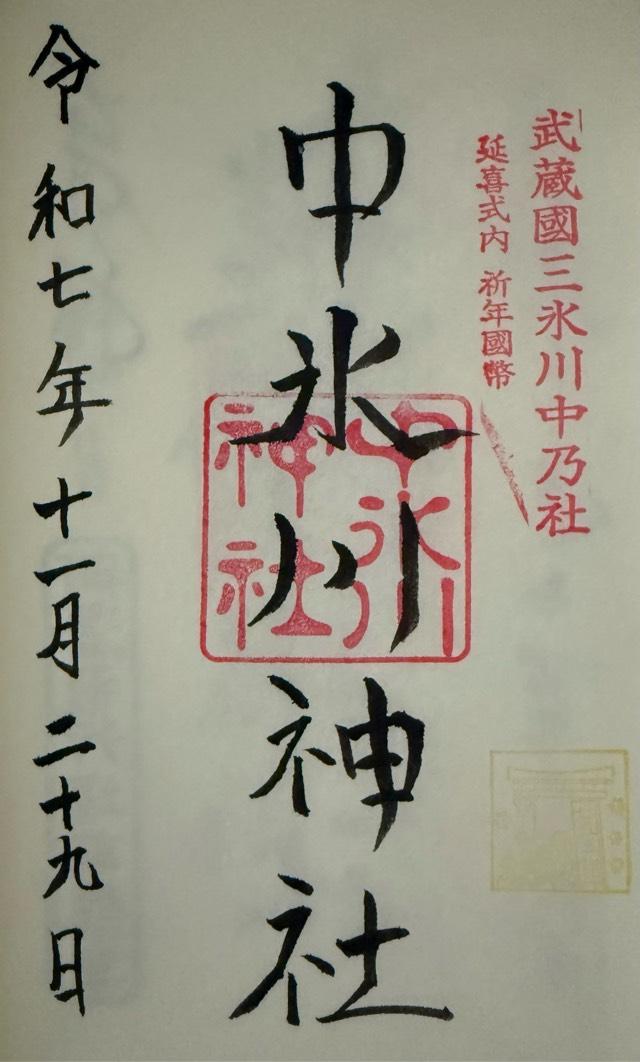 武蔵國三氷川中乃社
延喜式内 祈年國幣
中氷川神社
中氷川
神社
令和七年十一月二十九日